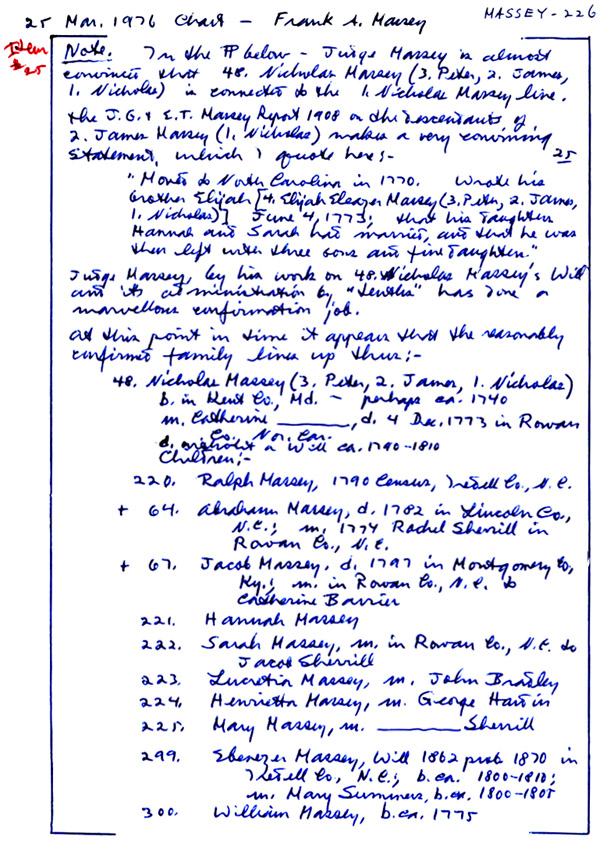 25 Mar. 1976 Chart – Frank A. Massey
MASSEY-226
Item
25
Note. In the ¶ below – Judge Massey is almost
convinced that 48. Nicholas Massey (3. Peter, 2. James,
1. Nicholas) is connected to the 1. Nicholas Massey line.
The J.G. & E.T. Massey Report 1908 on the descendants of
2. James Massey (1. Nicholas) makes a very convincing
statement, which I quote here;-
25
"Moved to North Carolina in 1770. Wrote his
brother Elijah [4. Elijah Eleazer Massey (3. Peter, 2. James,
1. Nicholas)] June 4, 1773; that his daughters
Hannah and Sarah had married, and that he was
then left with three sons and five daughters."
Judge Massey, by his work on 48. Nicholas Massey's Will
and its administration by "tenths" has done a
marvellous confirmation job.
At this point in time it appears that the reasonably
confirmed family lines up thus;-
48. Nicholas Massey (3. Peter, 2. James, 1. Nicholas)
b. in Kent Co., Md. – perhaps ca. 1740
m. Catherine ______, d. 4 Dec. 1773 in Rowan
Co., Nor. Car.
d. a Will ca. 1790-1810
Children;-
220. Ralph Massey, 1790 Census, Iredell Co., N.C.
+ 64. Abraham Massey, d. 1782 in Lincoln Co.,
N.C.; m. 1774 Rachel Sherrill in
Rowan Co., N.C.
+ 67. Jacob Massey, d. 1797 in Montgomery Co,
Ky.; m. in Rowan Co., N.C. to
Catherine Barrier
221. Hannah Massey
222. Sarah Massey, m. in Rowan Co., N.C. to
Jacob Sherrill
223. Lucretia Massey, m. John Bradley
224. Henrietta Massey, m. George Hartin
225. Mary Massey, m. ______ Sherrill
299. Ebenezer Massey, Will 1862 prob 1870 in
Iredell Co, N.C.; b. ca. 1800-1810;
m. Mary Summers, b. ca. 1800-1805
300. William Massey, b. ca. 1775